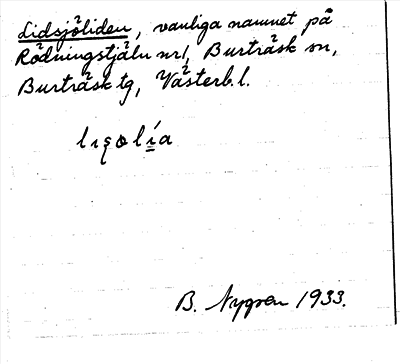 Lidsjöliden, vanliga namnet på
Rödningstjäln nr 1, Burträsk sn,
Burträsk tg, Västerb. l.
lıʂolía
B. Nygren 1933.